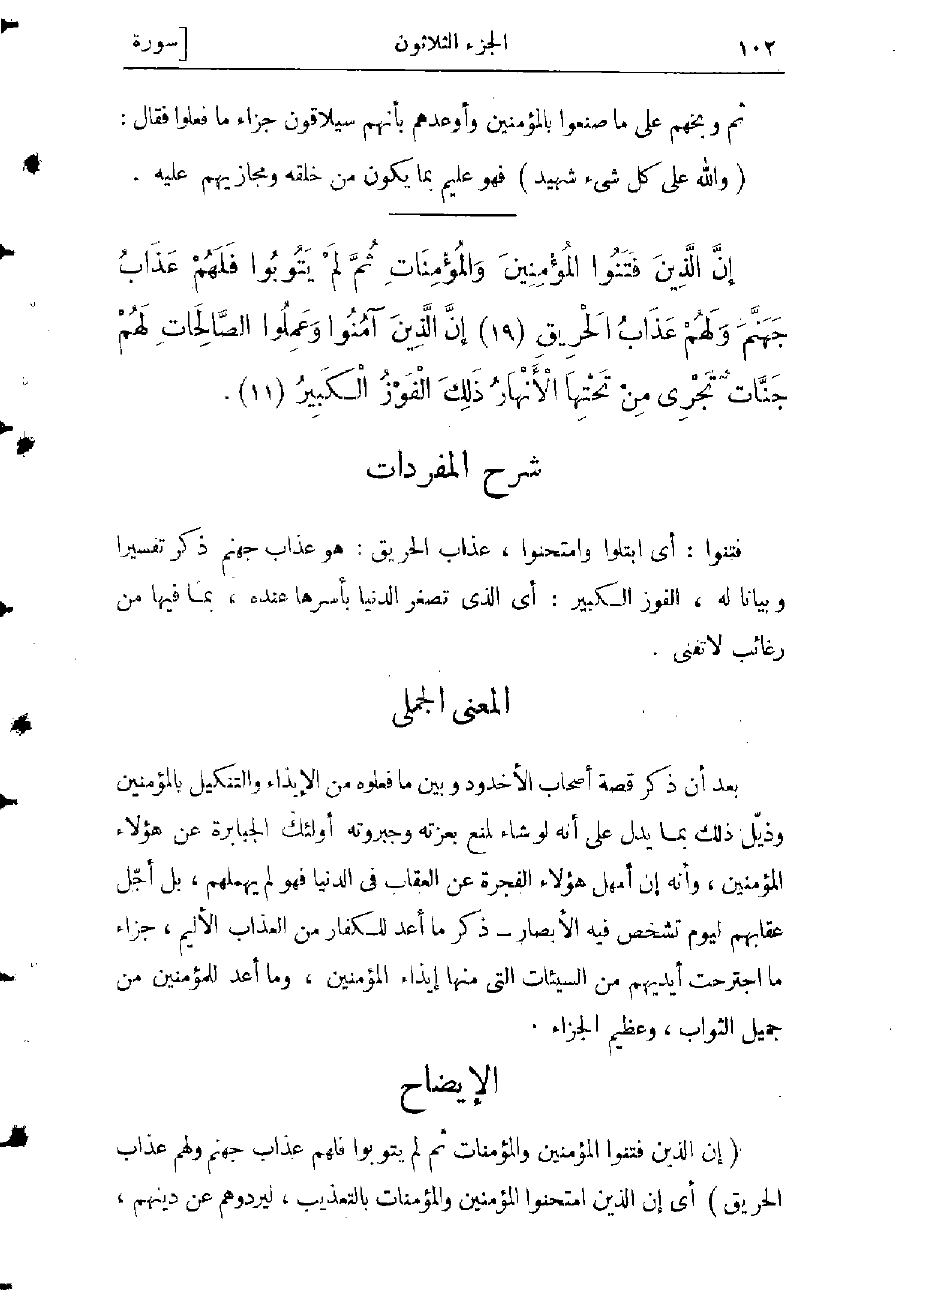 ١٠٢ الجزء الثلاثون [سورة
ثم وبخهم على ما صنعوا بالمؤمنين وأوعدهم بأنهم سيلاقون جزاء ما فعلوا فقال :
( والله على كل شىء شهيد ) فهو عليم بما يكون من خلقه ومجازيهم عليه .
إِنَّ الَّذِينَ فَتَنُوا الْمُؤْمِنِينَ وَالْمُؤْمِنَاتِ ثُمَّ لَمْ يَتُوبُوا فَلَهُمْ عَذَابُ
جَهَنَّمَ وَلَهُمْ عَذَابُ الْحَرِيقِ (١٩) إِنَّ الَّذِينَ آمَنُوا وَعَمِلُوا الصَّالِحَاتِ لَهُمْ
جَنَّاتٌ تَجْرِى مِنْ تَحْتِهَا الْأَنْهَارُ ذَلِكَ الْفَوْزُ الْكَبِيرُ (١١) .
شرح المفردات
فتنوا : أى ابتلوا وامتحنوا ، عذاب الحريق : هو عذاب جهنم ذكر تفسيرا
وبيانا له ، الفوز الكبير : أى الذى تصغر الدنيا بأسرها عنده ، بما فيها من
رغائب لا تفنى .
المعنى الجملى
بعد أن ذكر قصة أصحاب الأخدود وبين ما فعلوه من الإيذاء والتنكيل بالمؤمنين
وذيّل ذلك بما يدل على أنه لو شاء لمنع بعزته وجبروته أولئك الجبابرة عن هؤلاء
المؤمنين ، وأنه إن أمهل هؤلاء الفجرة عن العقاب فى الدنيا فهو لم يهملهم ، بل أجّل
عقابهم ليوم تشخص فيه الأبصار – ذكر ما أعد للكفار من العذاب الأليم ، جزاء
ما اجترحت أيديهم من السيئات التى منها إيذاء المؤمنين ، وما أعد للمؤمنين من
جميل الثواب ، وعظيم الجزاء .
الإيضاح
( إن الذين فتنوا المؤمنين والمؤمنات ثم لم يتوبوا فلهم عذاب جهنم ولهم عذاب
الحريق ) أى إن الذين امتحنوا المؤمنين والمؤمنات بالتعذيب ، ليردوهم عن دينهم ،